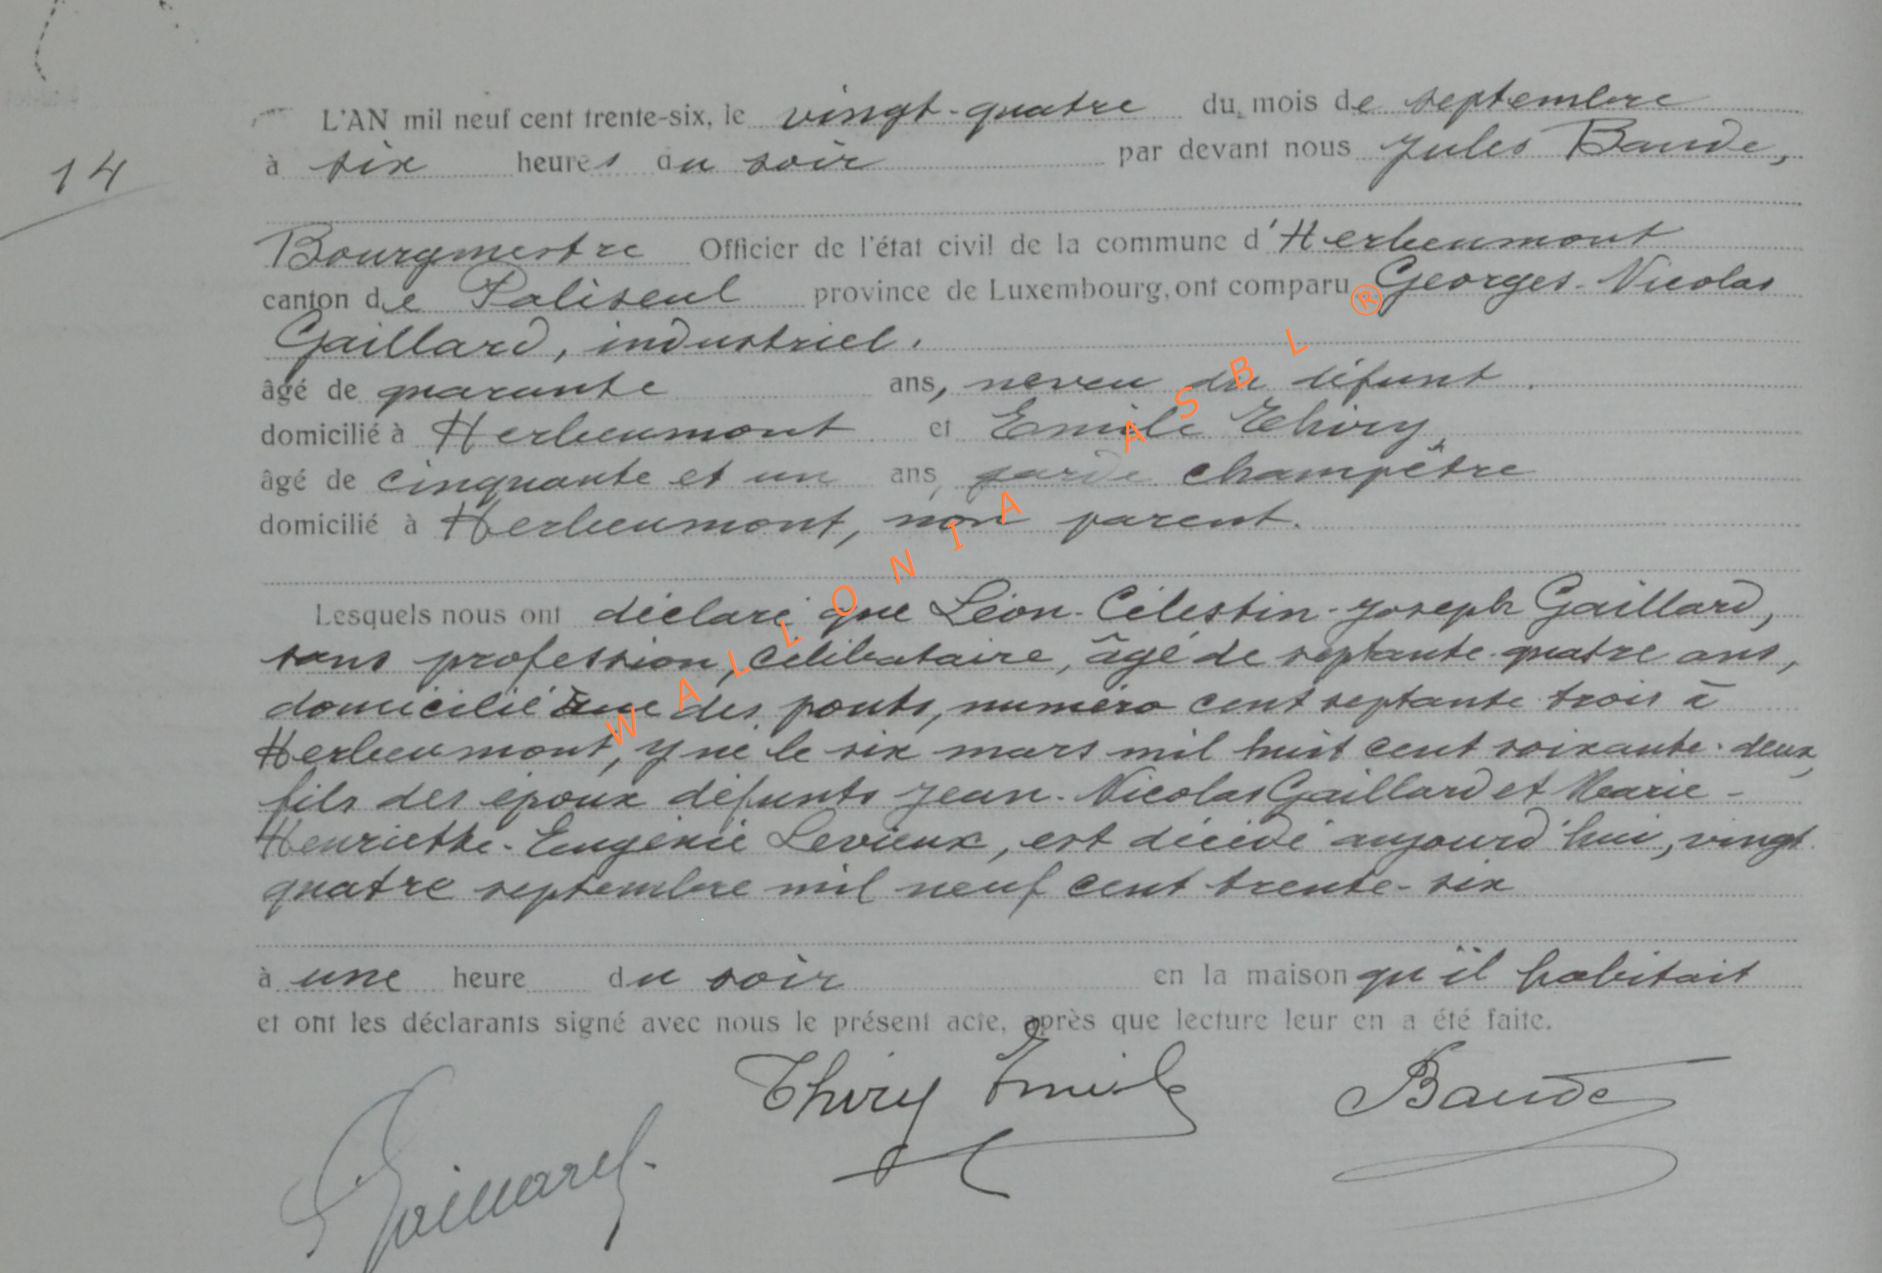 14
L'AN mil neuf cent trente-six, le vingt-quatre du mois de septembre
à six heures du soir par devant nous Jules Baude,
Bourgmestre Officier de l'état civil de la commune d'Herbeumont
canton de Paliseul province de Luxembourg, ont comparu Georges-Nicolas
Gaillard, industriel.
âgé de quarante ans, neveu du défunt.
domicilié à Herbeumont et Emile Thiry,
âgé de cinquante et un ans, garde champêtre
domicilié à Herbeumont, non parent.
Lesquels nous ont déclaré que Léon-Célestin-Joseph Gaillard,
sans profession, célibataire, âgé de septante-quatre ans,
domicilié rue des ponts, numéro cent septante trois à
Herbeumont, y né le six mars mil huit cent soixante-deux,
fils des époux défunts Jean-Nicolas Gaillard et Marie-
Henriette-Eugénie Levieux, est décédé aujourd'hui, vingt
quatre septembre mil neuf cent trente-six
à une heure du soir en la maison qu'il habitait
et ont les déclarants signé avec nous le présent acte, après que lecture leur en a été faite.
Thiry Emile Baude
Gaillard
WALLONIA ASBL ®